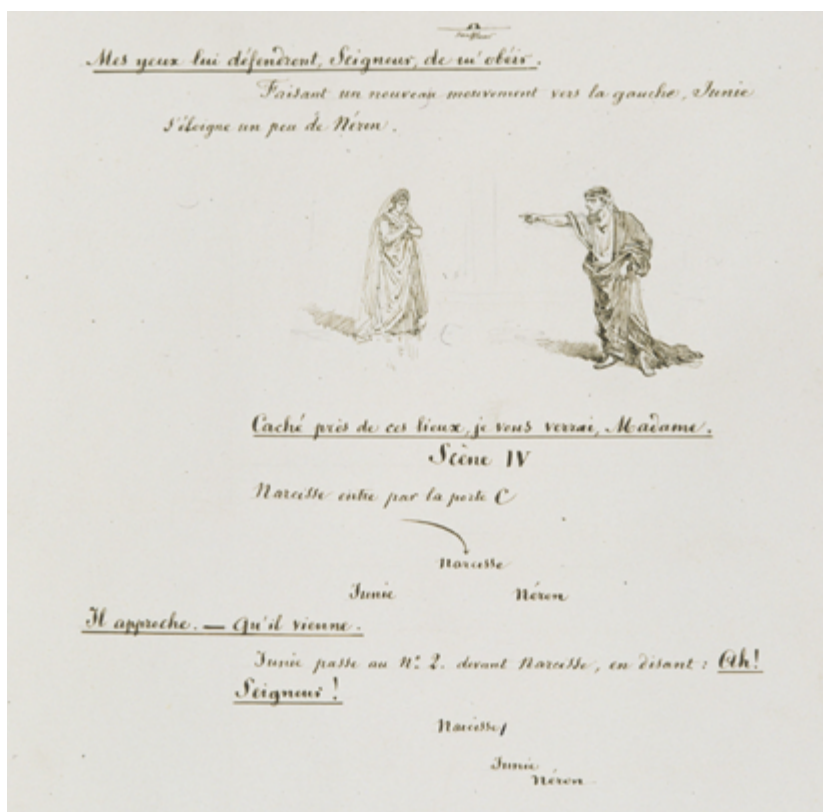 Mes yeux lui défendront, Seigneur, de m'obéir.
Faisant un nouveau mouvement vers la gauche, Junie
s'éloigne un peu de Néron.
Caché près de ces lieux, je vous verrai, Madame.
Scène IV
Narcisse entre par la porte C
Narcisse
Junie Néron
Il approche. — Qu'il vienne.
Junie passe au Nº 2. devant Narcisse, en disant : Ah!
Seigneur !
Narcisse
Junie
Néron